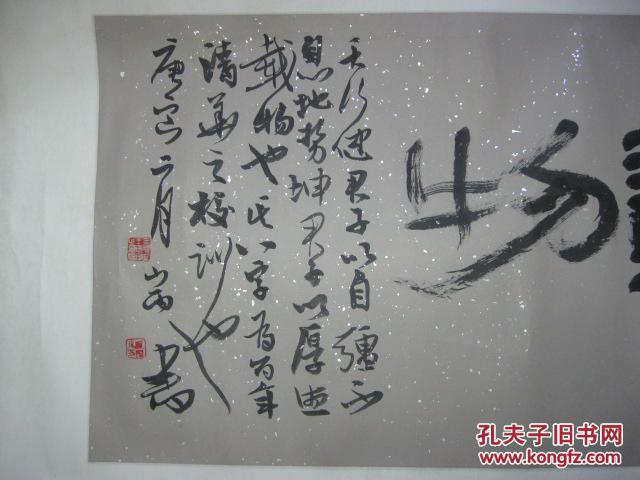 物
天行健君子以自彊不
息地势坤君子以厚德
載物也八字为百年
清華之校训也
庚寅二月 书
孔夫子旧书网
www.kongfz.com